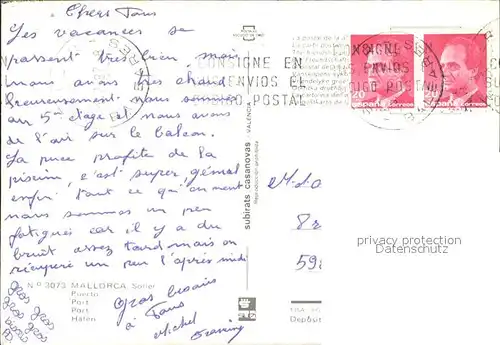 Chers Tous
Les vacances se
passent très bien, mais
nous avons très chaud
heureusement nous sommes
au 5e étage et nous avons
de l'air sur le balcon.
La puce profite de la
piscine, c'est super génial
enfin tout ce qu'on
nous sommes un peu
fatigués car il y a du
bruit assez tard mais on
récupère un peu l'après midi
Gros baisers
à Tous
Michel
gros
gros gros
gros
Nº 3073 MALLORCA Soller
Puerto
Port
Port
Hafen
subirats casanovas - VALENCIA
Reproducción prohibida
CONSIGNE EN
ENVIOS EL
CODIGO POSTAL
BALEARES
CONSIGNE EN
ENVIOS
CODIGO POSTAL
20
España correos
España correos
8 r
59
privacy protection
Datenschutz
Depós